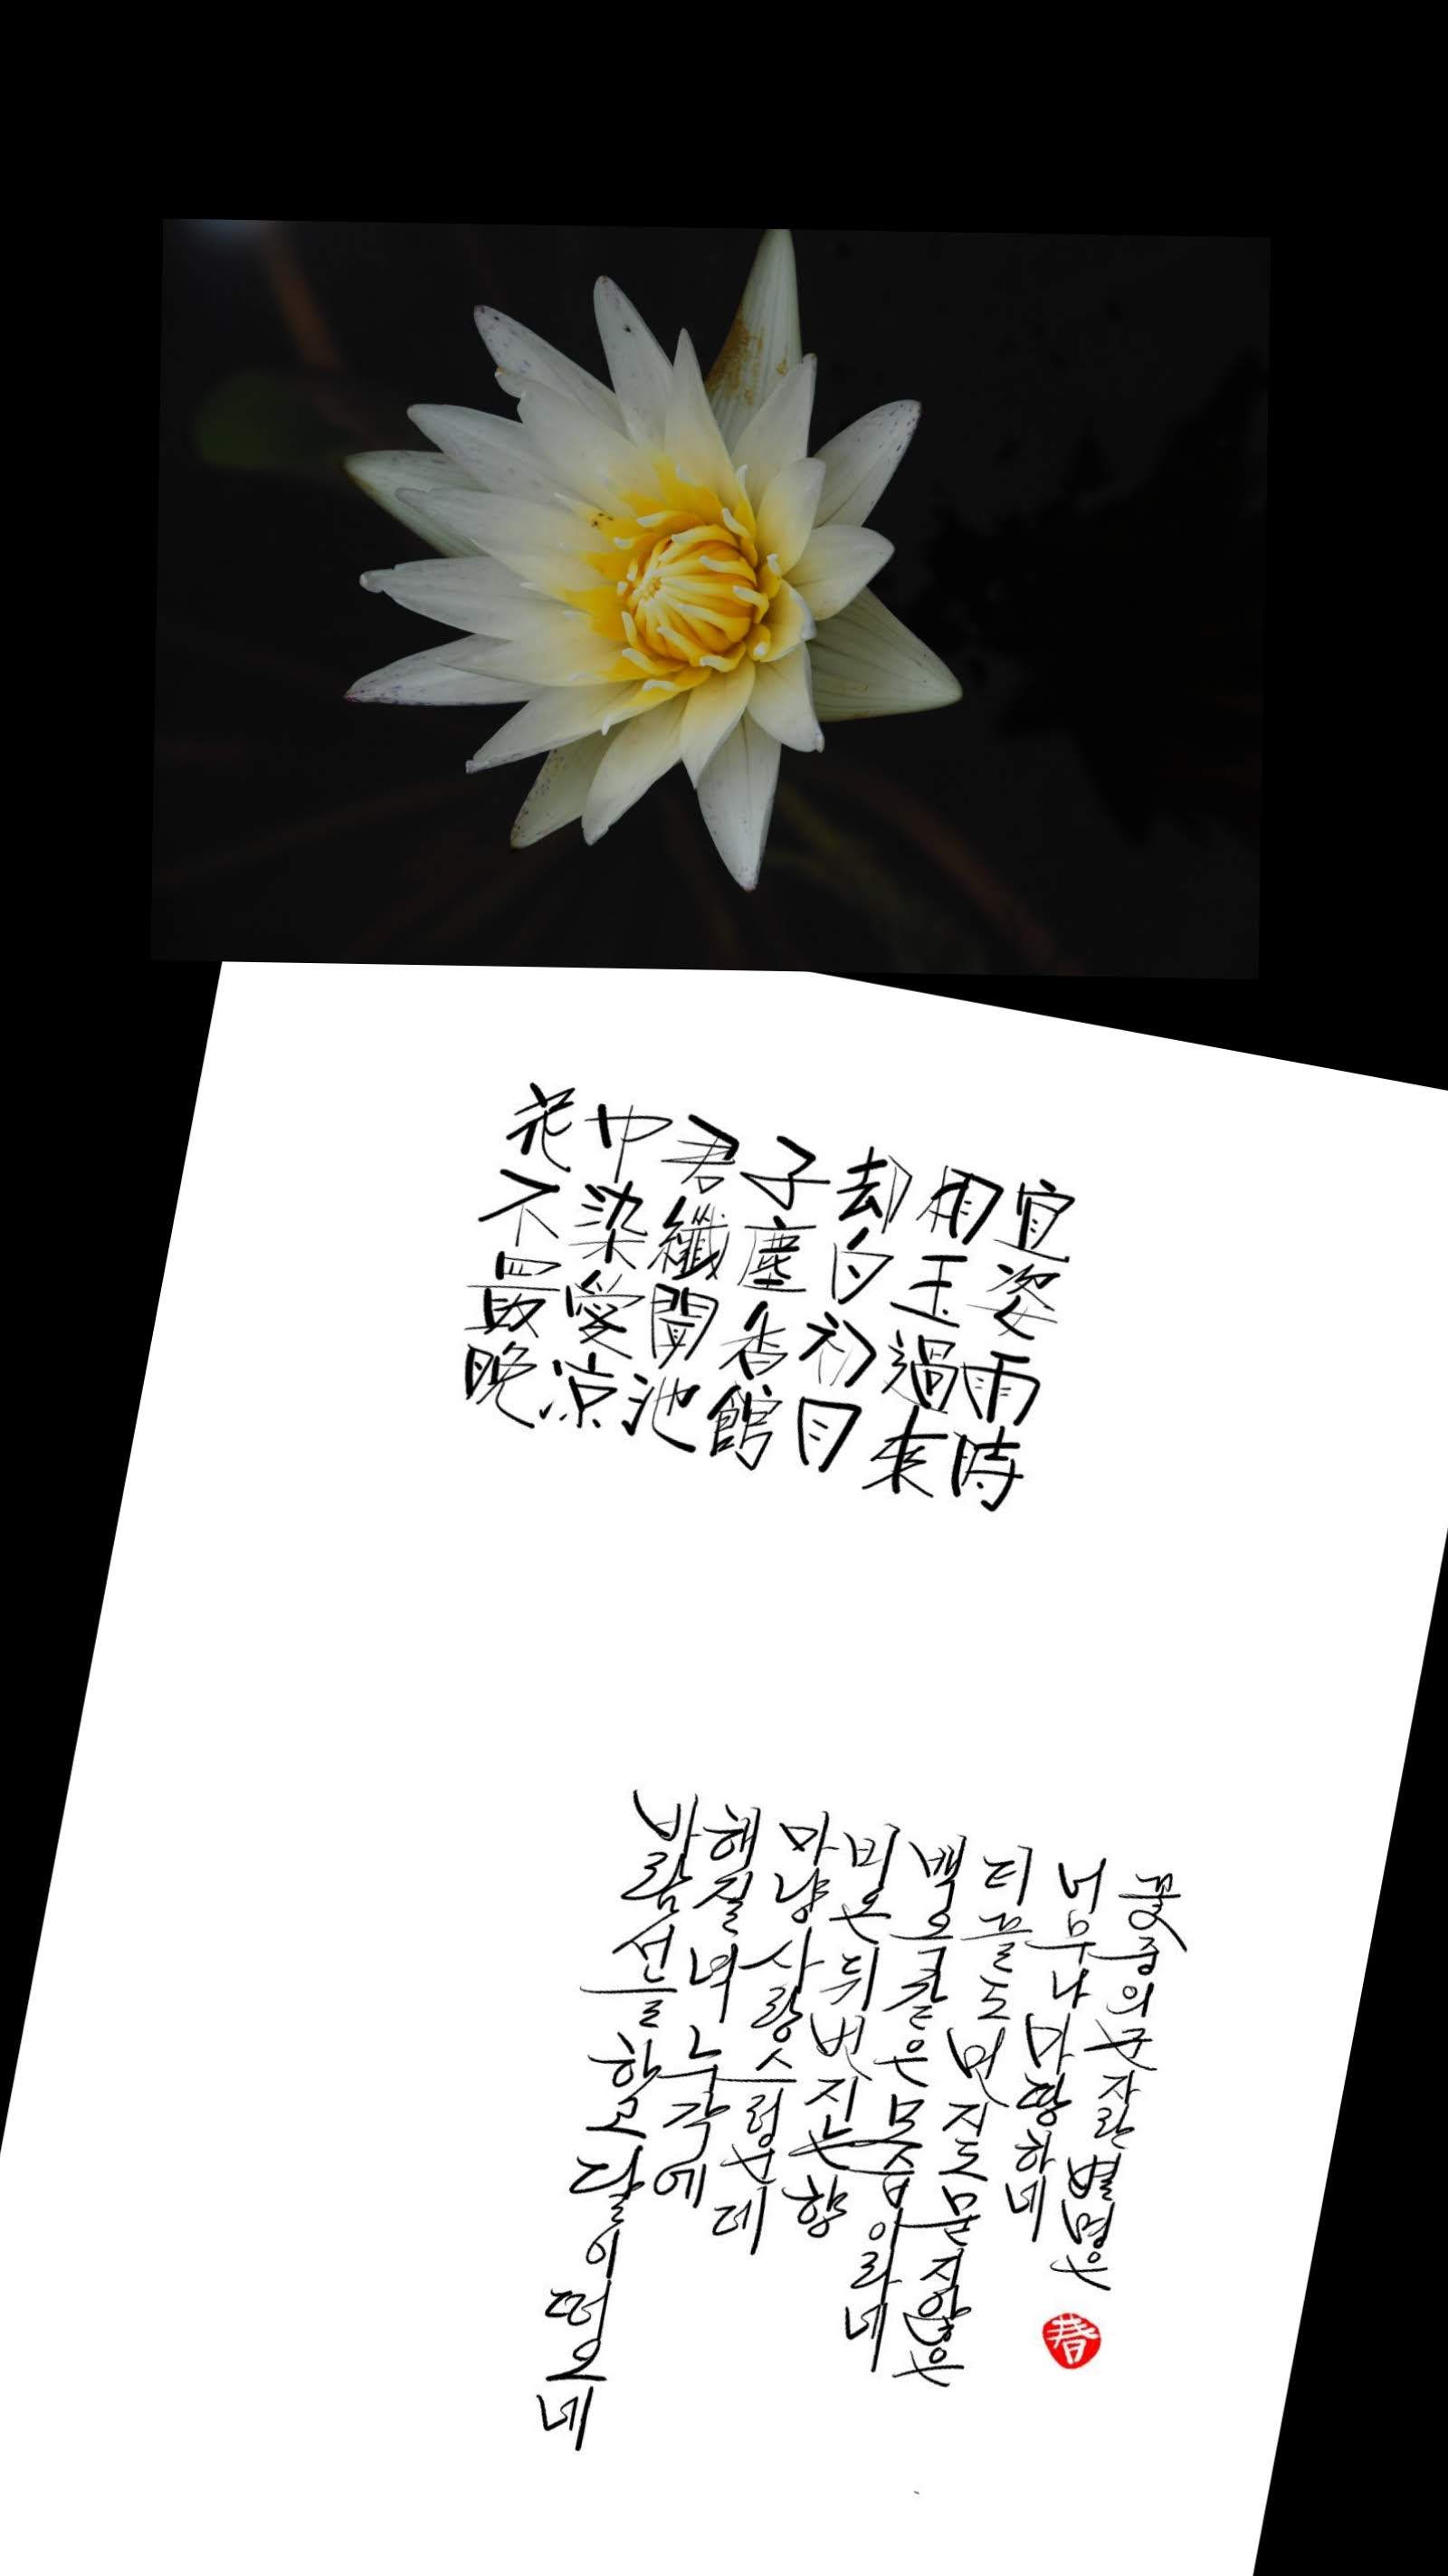 花中君子却相宜
不染纖塵白玉姿
最愛聞香初過雨
晚凉池館月來時
꽃중의 군자란 별명은
너무나 마땅하네
티끌도 먼지도 묻지않은
백옥같은 모습이라네
비온뒤 번지는 향
마냥 사랑스러운데
해질녁 누각에
바람 선들하고 달이 떠오네
春